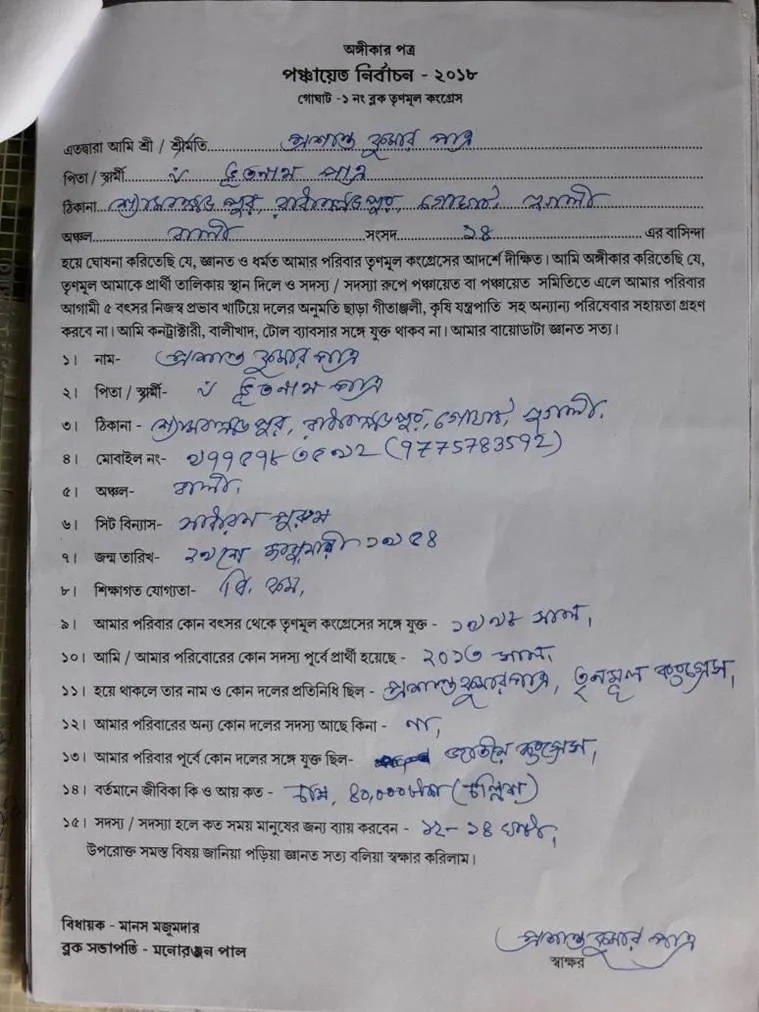 অঙ্গীকার পত্র
পঞ্চায়েত নির্বাচন - ২০১৮
গোঘাট -১ নং ব্লক তৃণমূল কংগ্রেস
এতদ্বারা আমি শ্রী / শ্রীমতি..........প্রশান্ত কুমার পাত্র..........
পিতা / স্বামী..........ভূতনাথ পাত্র..........
ঠিকানা..........শ্যামবল্লভপুর, রাধাবল্লভপুর, গোঘাট, হুগলী
অঞ্চল..........বালী..........সংসদ..........১৪..........এর বাসিন্দা
হয়ে ঘোষনা করিতেছি যে, জ্ঞানত ও ধর্মত আমার পরিবার তৃণমূল কংগ্রেসের আদর্শে দীক্ষিত। আমি অঙ্গীকার করিতেছি যে,
তৃণমূল আমাকে প্রার্থী তালিকায় স্থান দিলে ও সদস্য / সদস্যা রুপে পঞ্চায়েত বা পঞ্চায়েত সমিতিতে এলে আমার পরিবার
আগামী ৫ বৎসর নিজস্ব প্রভাব খাটিয়ে দলের অনুমতি ছাড়া গীতাঞ্জলী, কৃষি যন্ত্রপাতি সহ অন্যান্য পরিষেবার সহায়তা গ্রহণ
করবে না। আমি কনট্রাক্টারী, বালীখাদ, টোল ব্যাবসার সঙ্গে যুক্ত থাকব না। আমার বায়োডাটা জ্ঞানত সত্য।
১। নাম- প্রশান্ত কুমার পাত্র
২। পিতা / স্বামী- ভূতনাথ পাত্র
৩। ঠিকানা - শ্যামবল্লভপুর, রাধাবল্লভপুর, গোঘাট, হুগলী,
৪। মোবাইল নং- ৯৭৭৫৭৮৩৫৯২ (9775783592)
৫। অঞ্চল- বালী,
৬। সিট বিন্যাস- সাধারন পুরুষ
৭। জন্ম তারিখ- ২৯শে জানুয়ারী ১৯৫৪
৮। শিক্ষাগত যোগ্যতা- বি, কম,
৯। আমার পরিবার কোন বৎসর থেকে তৃণমূল কংগ্রেসের সঙ্গে যুক্ত - ১৯৯৮ সাল,
১০। আমি / আমার পরিবারের কোন সদস্য পূর্বে প্রার্থী হয়েছে - ২০১৩ সাল,
১১। হয়ে থাকলে তার নাম ও কোন দলের প্রতিনিধি ছিল - প্রশান্ত কুমার পাত্র, তৃনমূল কংগ্রেস,
১২। আমার পরিবারের অন্য কোন দলের সদস্য আছে কিনা - না,
১৩। আমার পরিবার পূর্বে কোন দলের সঙ্গে যুক্ত ছিল- জাতীয় কংগ্রেস,
১৪। বর্তমানে জীবিকা কি ও আয় কত - চাষ, ৪০,০০০ (চল্লিশ)
১৫। সদস্য / সদস্যা হলে কত সময় মানুষের জন্য ব্যায় করবেন - ১২-১৪ ঘন্টা,
উপরোক্ত সমস্ত বিষয় জানিয়া পড়িয়া জ্ঞানত সত্য বলিয়া স্বক্ষার করিলাম।
বিধায়ক - মানস মজুমদার
ব্লক সভাপতি - মনোরঞ্জন পাল
প্রশান্ত কুমার পাত্র
স্বাক্ষর